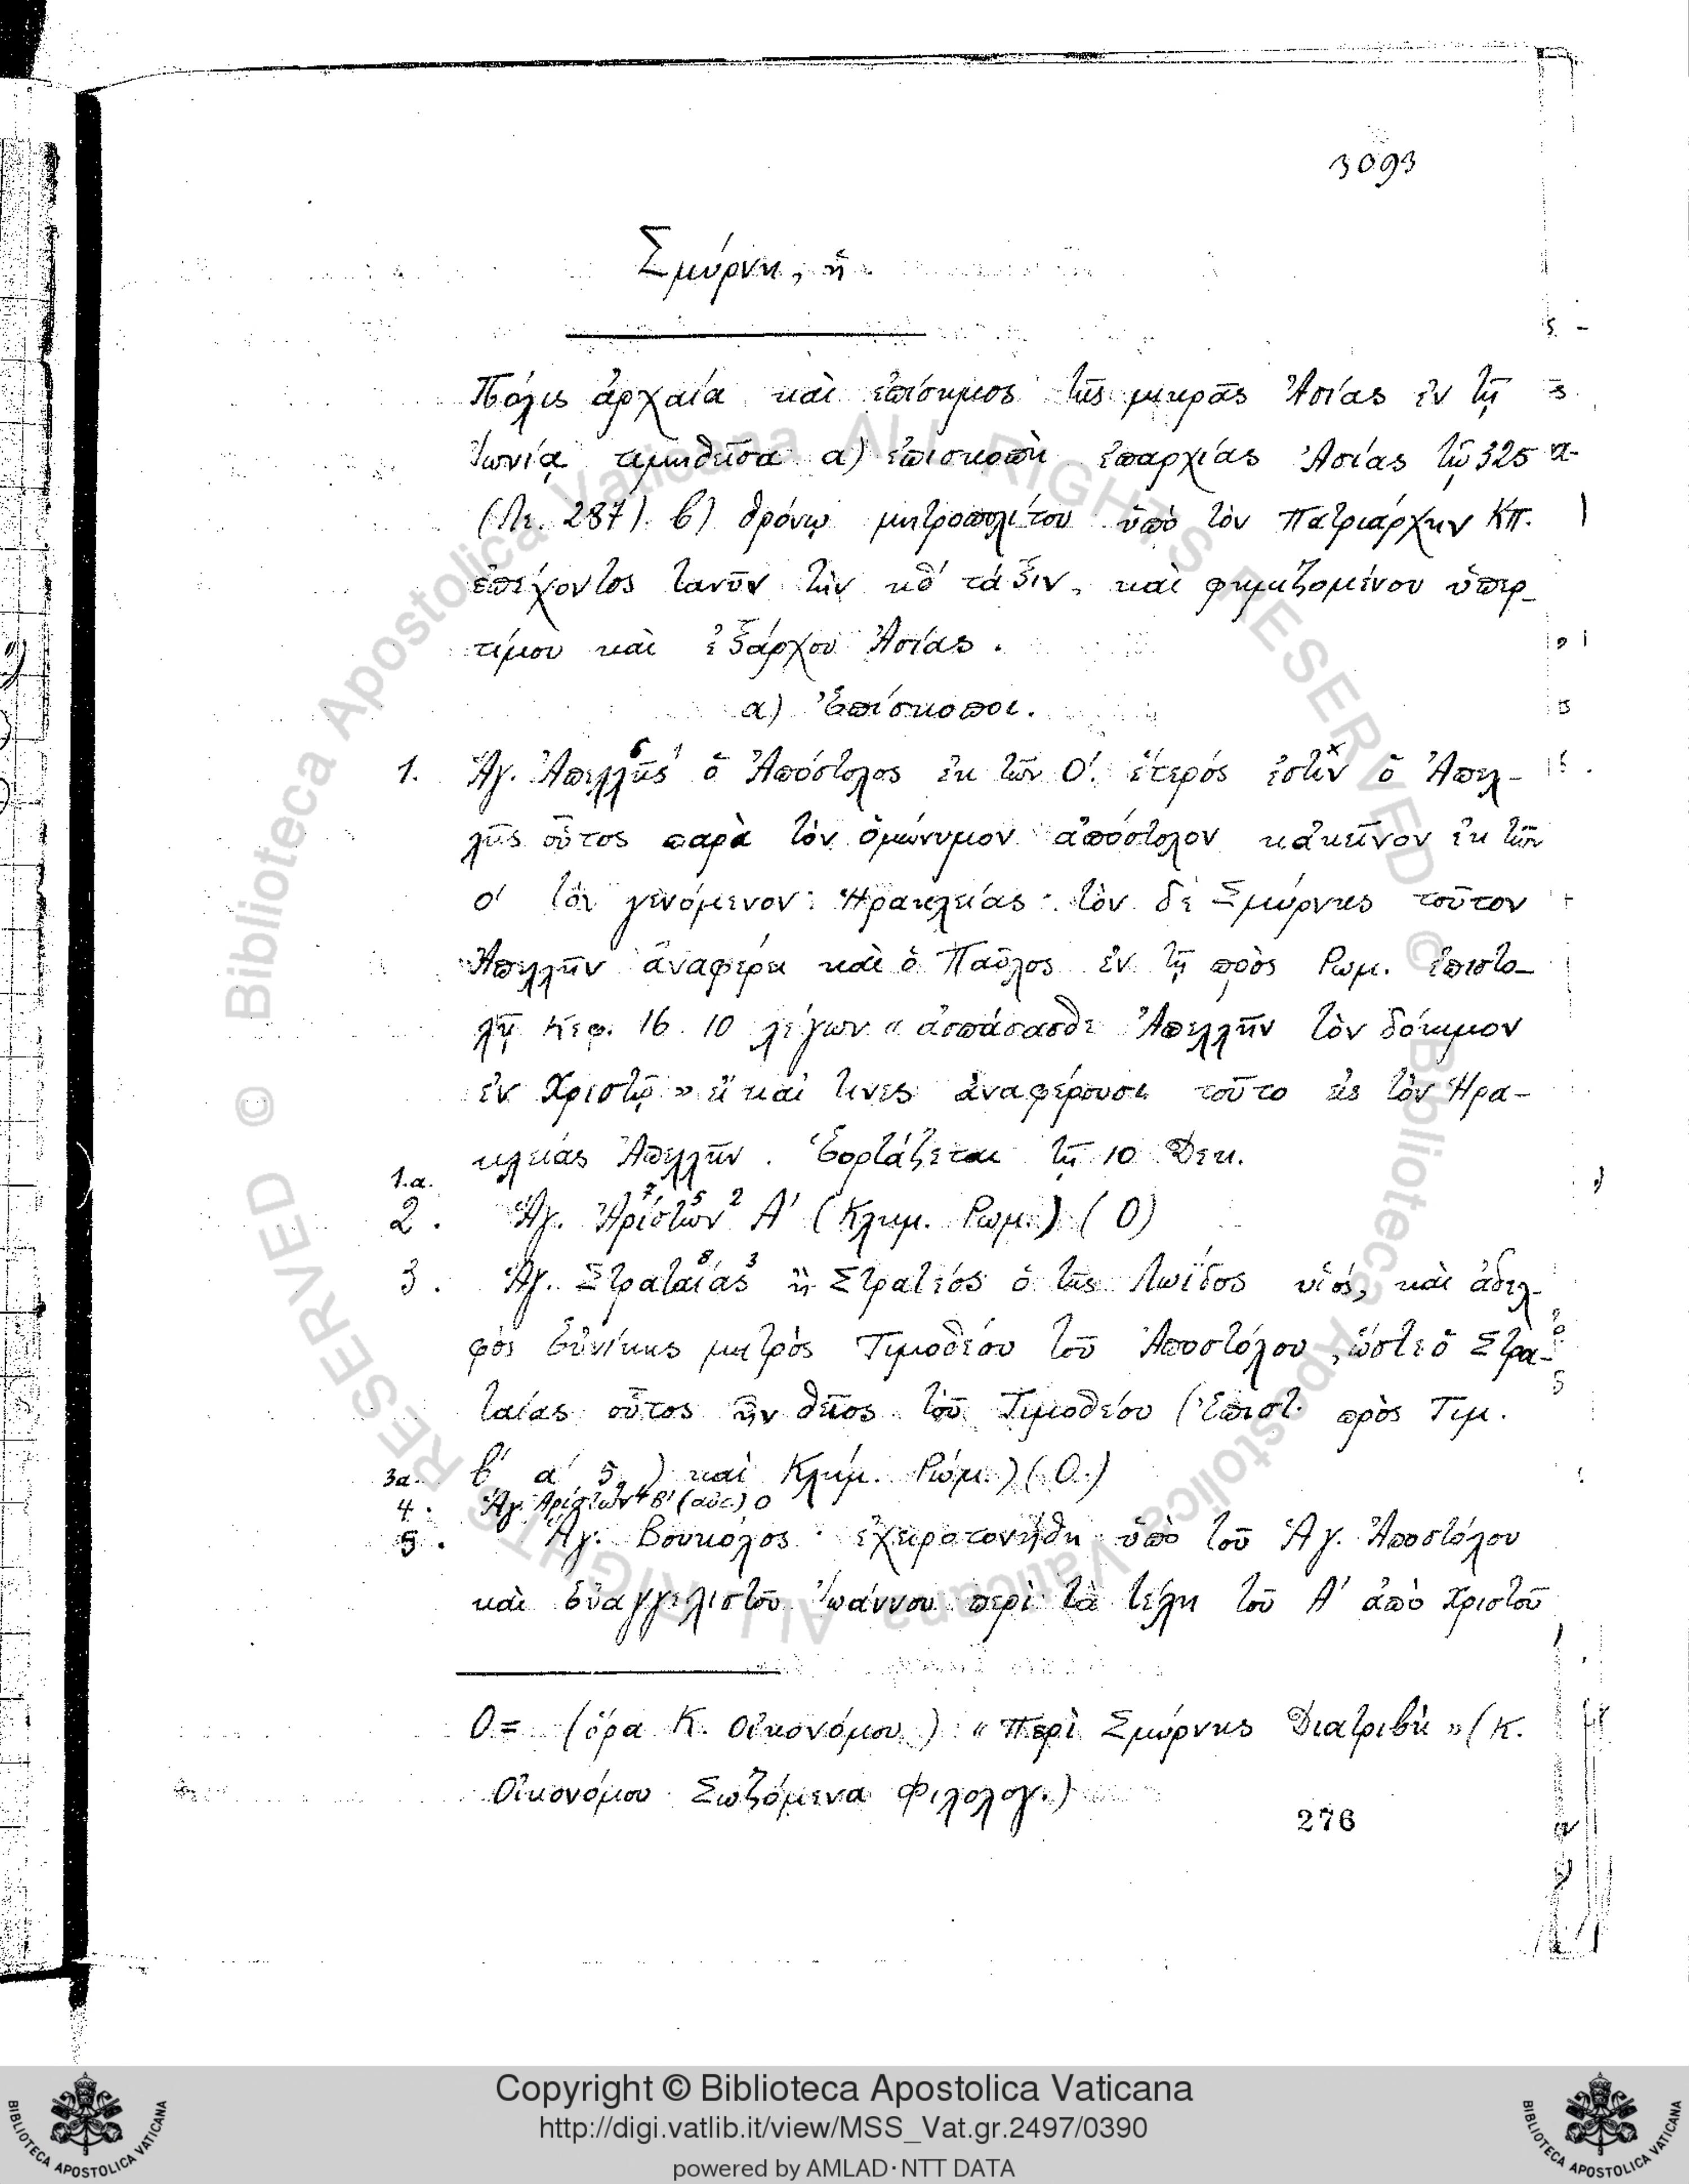 3093
Σμύρνη, ἡ.
Πόλις ἀρχαία καὶ ἐπίσημος τῆς μικρᾶς Ἀσίας ἐν τῇ
Ἰωνίᾳ τιμηθεῖσα α) ἐπισκοπὴ ἐπαρχίας Ἀσίας τῷ 325
(Λε. 287). β) θρόνῳ μητροπολίτου ὑπὸ τὸν Πατριάρχην ΚΠ.
ἐπέχοντος τανῦν τὴν κδ΄ τάξιν, καὶ φημιζομένου ὑπερ-
τίμου καὶ ἐξάρχου Ἀσίας.
α) Ἐπίσκοποι.
1. Ἅγ. Ἀπελλῆς 6 1 ὁ Ἀπόστολος ἐκ τῶν Ο΄. ἕτερός ἐστὶν x ὁ Ἀπελ-
λῆς οὗτος παρὰ τὸν ὁμώνυμον ἀπόστολον κἀκεῖνον ἐκ τῶν
ο΄ τὸν γενόμενον Ἡρακλείας· τὸν δὲ Σμύρνης τοῦτον
Ἀπελλῆν ἀναφέρει καὶ ὁ Παῦλος ἐν τῇ πρὸς Ρωμ. ἐπιστο-
λῇ Κεφ. 16. 10 λέγων « ἀσπάσασθε Ἀπελλῆν τὸν δόκιμον
ἐν Χριστῷ » εἰ καί τινες ἀναφέρουσι τοῦτο εἰς τὸν Ἡρα-
κλείας Ἀπελλῆν. Ἑορτάζεται τῇ 10 Δεκ.
1.α.
2. Ἅγ. Ἀρίστων 7 5 2 Α΄ (Κλημ. Ρωμ.) (Ο)
3. Ἅγ. Στραταίας 8 3 ἢ Στρατέος ὁ τῆς Λωΐδος υἱός, καὶ ἀδελ-
φὸς Εὐνίκης μητρὸς Τιμοθέου τοῦ Ἀποστόλου, ὥστε ὁ Στρα-
ταίας οὗτος ἦν θεῖος τοῦ Τιμοθέου (Ἐπιστ. πρὸς Τιμ.
3α. β΄ α΄ 5.) καὶ Κλήμ. Ρώμ.) (Ο.)
4. Ἅγ. Ἀρίστων 4 Β΄ (αὐτ.) Ο
5. Ἅγ. Βουκόλος· ἐχειροτονήθη ὑπὸ τοῦ Ἁγ. Ἀποστόλου
καὶ Εὐαγγελιστοῦ Ἰωάννου περὶ τὰ τέλη τοῦ Α΄ ἀπὸ Χριστοῦ
Ο = (ὅρα Κ. Οἰκονόμου) « Περὶ Σμύρνης Διατριβὴ » (Κ.
Οἰκονόμου Σωζόμενα Φιλολογ.)
276
© Biblioteca Apostolica Vaticana ALL RIGHTS RESERVED © Biblioteca Apostolica Vaticana ALL RIGHTS RESERVED
Copyright © Biblioteca Apostolica Vaticana
http://digi.vatlib.it/view/MSS_Vat.gr.2497/0390
powered by AMLAD·NTT DATA
BIBLIOTECA APOSTOLICA VATICANA
BIBLIOTECA APOSTOLICA VATICANA